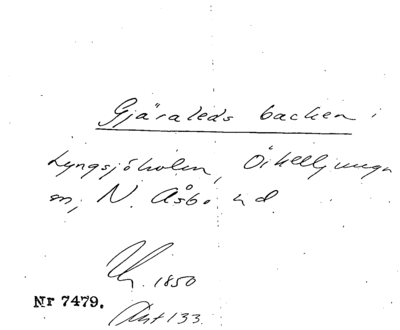 Gjäraleds backen i
Lyngsjöholm, Örkelljunga
sn, N. Åsbo hd
1850
Nr 7479.
133.